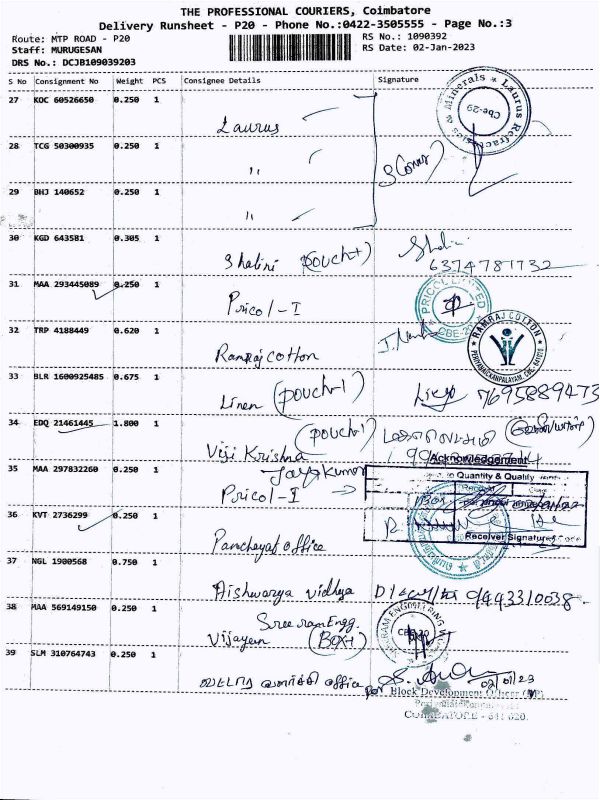 THE PROFESSIONAL COURIERS, Coimbatore
Delivery Runsheet - P20 - Phone No.:0422-3505555 - Page No.:3
Route: MTP ROAD - P20
RS No.: 1090392
Staff: MURUGESAN
RS Date: 02-Jan-2023
DRS No.: DCJB109039203
S No Consignment No Weight PCS Consignee Details Signature
27 KOC 60526650 0.250 1 Laurus
Minerals * Laurus Refractories & Cbe-29
28 TCG 50300935 0.250 1 "
29 BHJ 140652 0.250 1 "
30 KGD 643581 0.305 1 Shalini (pouch+) Shalini
6374781732
31 MAA 293445089 0.250 1 Pricol-I
PRICOL LIMITED CBE-20
32 TRP 4188449 0.620 1 Ramraj cotton
RAMRAJ COTTON
33 BLR 1600925485 0.675 1 Linen (pouch-1) 7695889473
34 EDQ 21461445 1.800 1 Viji Krishna (pouch-1)
Jayakumar
Acknowledgement
35 MAA 297832260 0.250 1 Pricol-I
Quantity & Quality
Receiver Signature
36 KVT 2736299 0.250 1 Panchayat office
37 NGL 1900568 0.750 1 Aishwarya vidhya 9443310038
38 MAA 569149150 0.250 1 Sree ram Engg.
Vijayan (Box+)
39 SLM 310764743 0.250 1 வட்டார வளர்ச்சி office
02/01/23
Block Development Officer (VP)
COIMBATORE - 641 020.